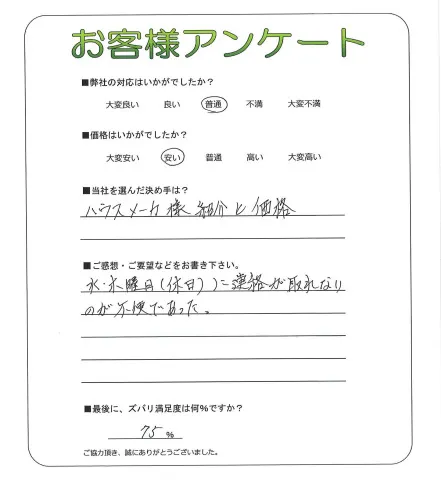 お客様アンケート
■弊社の対応はいかがでしたか？
大変良い 良い 普通 不満 大変不満
■価格はいかがでしたか？
大変安い 安い 普通 高い 大変高い
■当社を選んだ決め手は？
ハウスメーカ様 紹介と価格
■ご感想・ご要望などをお書き下さい。
火・水曜日(休日)に連絡が取れない
のが不便であった。
■最後に、ズバリ満足度は何%ですか？
75 %
ご協力頂き、誠にありがとうございました。